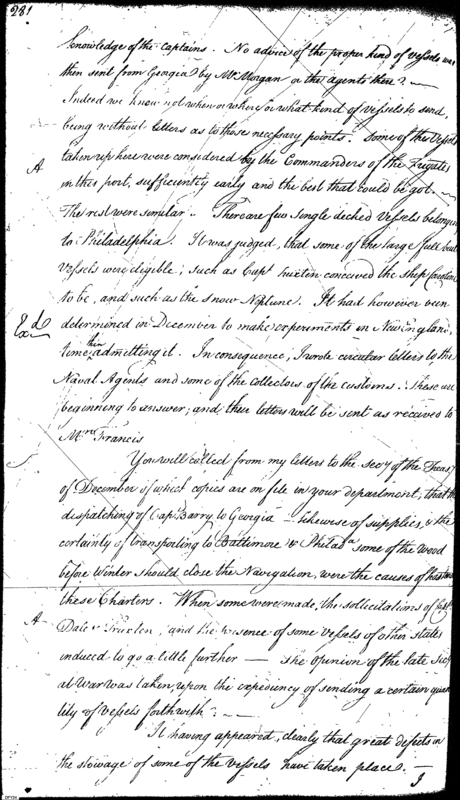 281
knowledge of the captains. No advice of the proper kind of vessels was
then sent from Georgia by Mr. Morgan or the agents there? —
Indeed we know not when or where or what kind of vessels to send,
being without letters as to those necessary points. Some of the vessels
A taken up here were considered by the Commanders of the Frigates
in this port, sufficiently early and the best that could be got —
The rest were similar. There are few single decked vessels belonging
to Philadelphia. It was judged, that some of the large full built
vessels were eligible; such as Capt. Truxton conceived the ship Caroline
to be, and such as the Snow Neptune. It had however been
Exd determined in December to make experiments in New England,
time then admitting it. In consequence, I wrote circular letters to the
Naval Agents and some of the collectors of the customs. These are
beginning to answer; and their letters will be sent as received to
Mr. Francis
You will collect from my letters to the Secy of the Treasy
of December of which copies are on file in your department, that the
dispatching of Capt. Barry to Georgia — likewise of supplies, & the
certainty of transporting to Baltimore & Philada some of the wood
before Winter should close the Navigation, were the causes of
these Charters. When some were made, the sollicitations of Capt.
A Dale & Truxton, and the presence of some vessels of other states
induced to go a little further — The opinion of the late Secy
at War was taken, upon the expediency of sending a certain quan
tity of vessels forthwith? —
It having appeared, clearly that great defects in
the stowage of some of the vessels have taken place. —
I